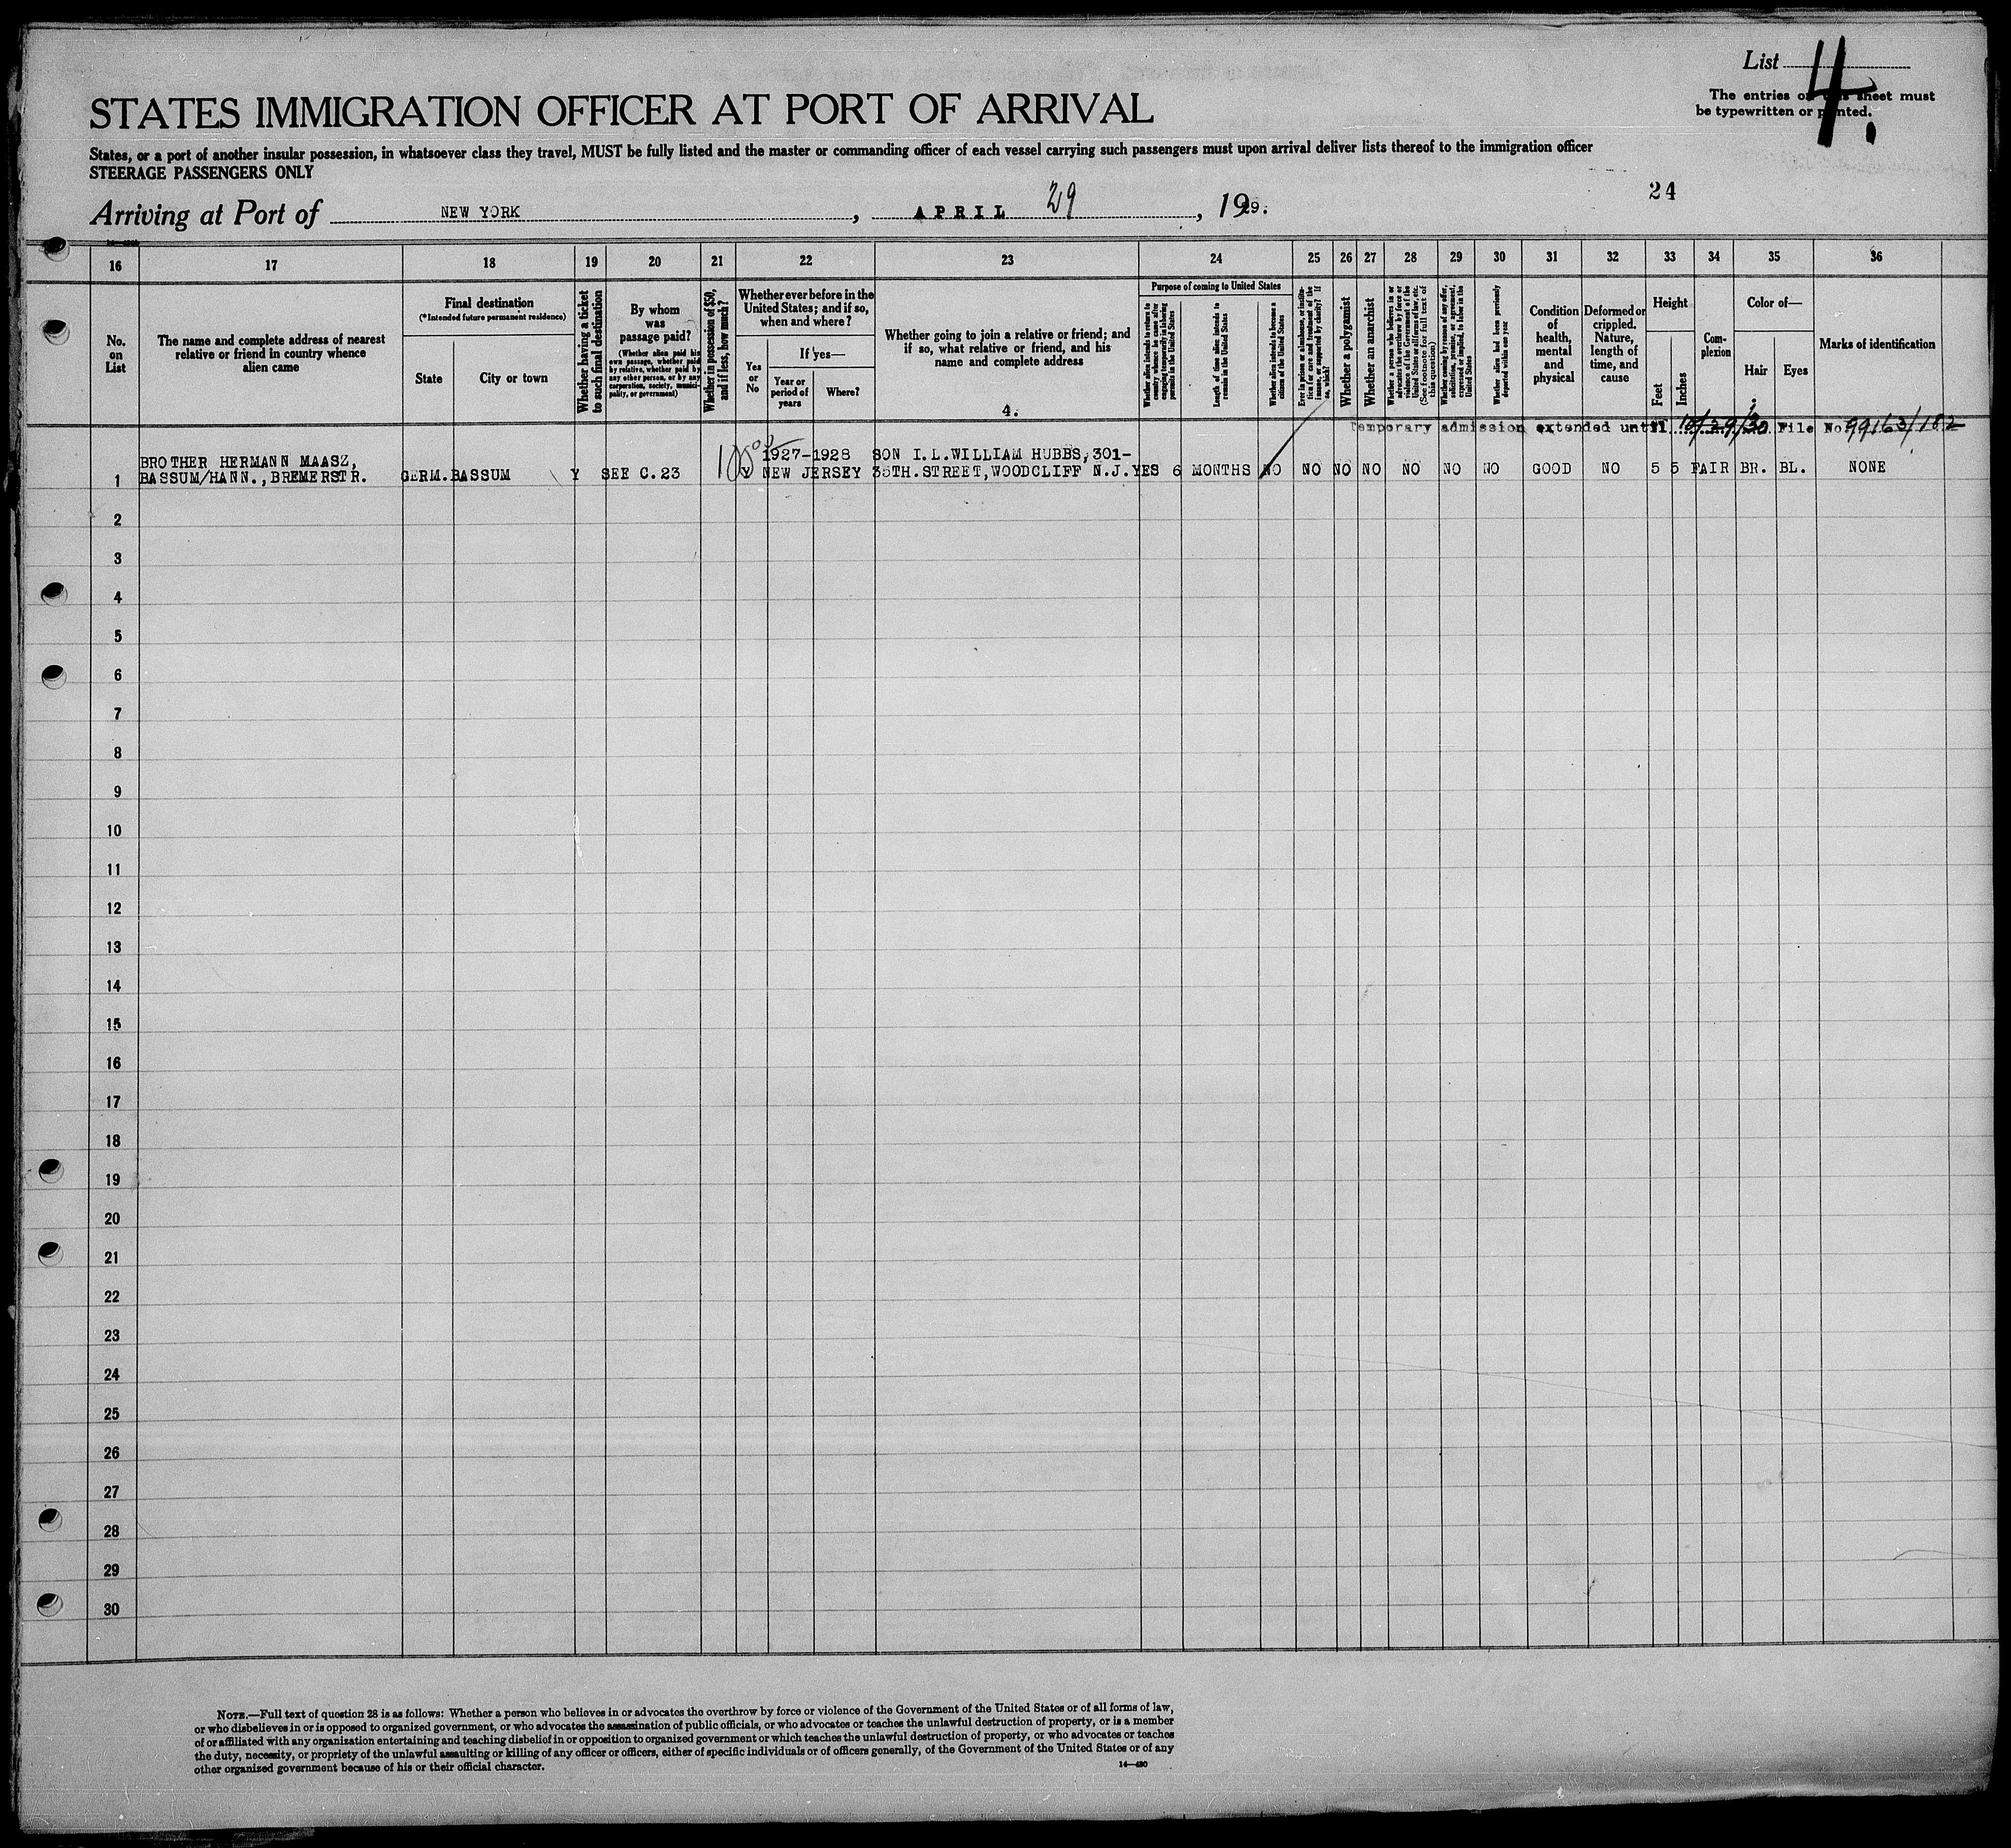 List 4.
The entries on this sheet must
be typewritten or printed.
STATES IMMIGRATION OFFICER AT PORT OF ARRIVAL
States, or a port of another insular possession, in whatsoever class they travel, MUST be fully listed and the master or commanding officer of each vessel carrying such passengers must upon arrival deliver lists thereof to the immigration officer
STEERAGE PASSENGERS ONLY
24
Arriving at Port of NEW YORK, APRIL 29, 1929.
16 17 18 19 20 21 22 23 24 25 26 27 28 29 30 31 32 33 34 35 36
No.
on
List
The name and complete address of nearest
relative or friend in country whence
alien came
Final destination
(*Intended future permanent residence)
State
City or town
Whether having a ticket
to such final destination
By whom
was
passage paid?
(Whether alien paid his
own passage, whether paid
by relative, whether paid by
any other person, or by any
corporation, society, munici-
pality, or government)
Whether in possession of $50,
and if less, how much?
Whether ever before in the
United States; and if so,
when and where?
Yes
or
No
If yes—
Year or
period of
years
Where?
Whether going to join a relative or friend; and
if so, what relative or friend, and his
name and complete address
4.
Purpose of coming to United States
Whether alien intends to return to
country whence he came after
engaging temporarily in laboring
pursuits in the United States
Length of time alien intends to
remain in the United States
Whether alien intends to become a
citizen of the United States
Ever in prison or almshouse, or institu-
tion for care and treatment of the
insane, or supported by charity? If
so, which?
Whether a polygamist
Whether an anarchist
Whether a person who believes in or
advocates the overthrow by force or
violence of the Government of the
United States or all forms of law, etc.
(See footnote for full text of
this question)
Whether coming by reason of any offer,
solicitation, promise, or agreement,
expressed or implied, to labor in the
United States
Whether alien had been previously
deported within one year
Condition
of
health,
mental
and
physical
Deformed or
crippled.
Nature,
length of
time, and
cause
Height
Feet
Inches
Com-
plexion
Color of—
Hair
Eyes
Marks of identification
Temporary admission extended until 10/29/30 File No 99163/182
1 BROTHER HERMANN MAASZ,
BASSUM/HANN., BREMERSTR. GERM. BASSUM Y SEE C.23 100 Y 1927-1928
NEW JERSEY SON I.L. WILLIAM HUBBS, 301-
35TH. STREET, WOODCLIFF N.J. YES 6 MONTHS NO NO NO NO NO NO NO GOOD NO 5 5 FAIR BR. BL. NONE
2
3
4
5
6
7
8
9
10
11
12
13
14
15
16
17
18
19
20
21
22
23
24
25
26
27
28
29
30
NOTE.—Full text of question 28 is as follows: Whether a person who believes in or advocates the overthrow by force or violence of the Government of the United States or of all forms of law,
or who disbelieves in or is opposed to organized government, or who advocates the assassination of public officials, or who advocates or teaches the unlawful destruction of property, or is a member
of or affiliated with any organization entertaining and teaching disbelief in or opposition to organized government or which teaches the unlawful destruction of property, or who advocates or teaches
the duty, necessity, or propriety of the unlawful assaulting or killing of any officer or officers, either of specific individuals or of officers generally, of the Government of the United States or of any
other organized government because of his or their official character.
14—430